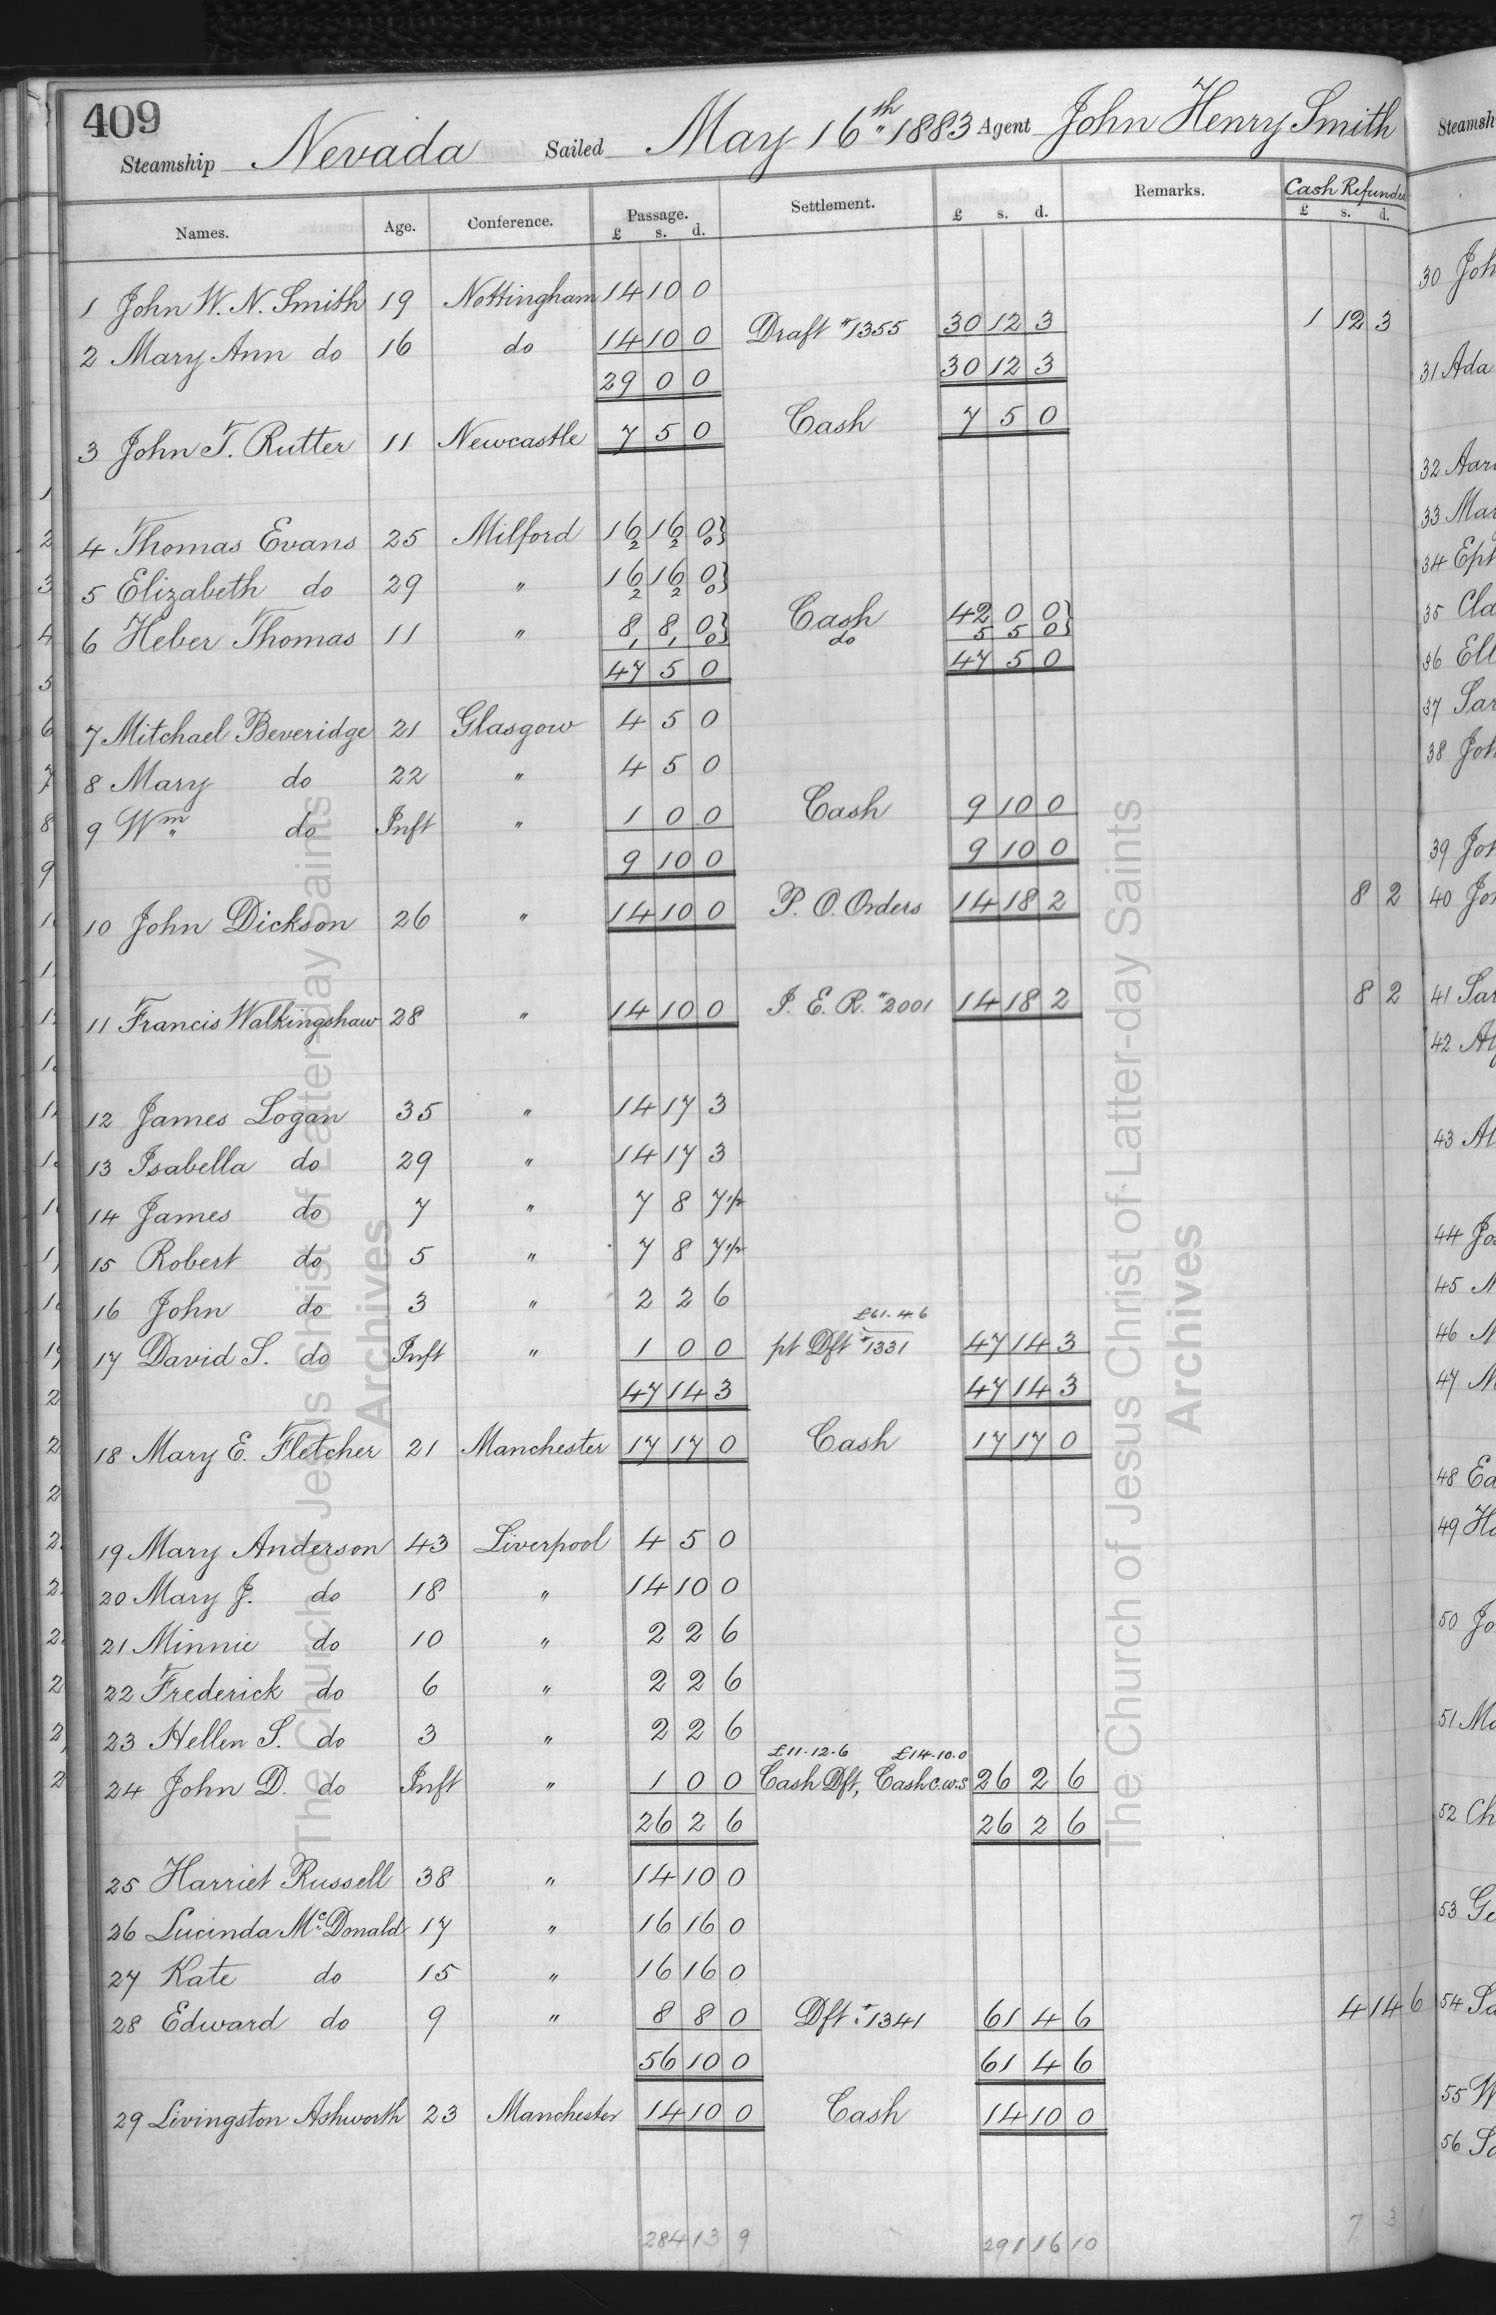 409
Steamship Nevada Sailed May 16th 1883 Agent John Henry Smith
Names. Age. Conference. Passage. £ s. d. Settlement. £ s. d. Remarks. Cash Refunded £ s. d.
1 John W. N. Smith 19 Nottingham 14 10 0
2 Mary Ann do 16 do 14 10 0 Draft #1355 30 12 3 1 12 3
29 0 0 30 12 3
3 John T. Rutter 11 Newcastle 7 5 0 Cash 7 5 0
4 Thomas Evans 25 Milford 16 16 0}
2 2 0}
5 Elizabeth do 29 " 16 16 0}
2 2 0}
6 Heber Thomas 11 " 8 8 0} Cash 42 0 0}
1 1 0} do 5 5 0}
47 5 0 47 5 0
7 Mitchael Beveridge 21 Glasgow 4 5 0
8 Mary do 22 " 4 5 0
9 Wm do Inft " 1 0 0 Cash 9 10 0
9 10 0 9 10 0
10 John Dickson 26 " 14 10 0 P. O. Orders 14 18 2 8 2
11 Francis Walkingshaw 28 " 14 10 0 I. E. R. #2001 14 18 2 8 2
12 James Logan 35 " 14 17 3
13 Isabella do 29 " 14 17 3
14 James do 7 " 7 8 7½
15 Robert do 5 " 7 8 7½
16 John do 3 " 2 2 6
£61.4.6
17 David S. do Inft " 1 0 0 pt Dft #1331 47 14 3
47 14 3 47 14 3
18 Mary E. Fletcher 21 Manchester 17 17 0 Cash 17 17 0
19 Mary Anderson 43 Liverpool 4 5 0
20 Mary J. do 18 " 14 10 0
21 Minnie do 10 " 2 2 6
22 Frederick do 6 " 2 2 6
23 Hellen S. do 3 " 2 2 6
£11.12.6 £14.10.0
24 John D. do Inft " 1 0 0 Cash Dft, Cash C.W.S 26 2 6
26 2 6 26 2 6
25 Harriet Russell 38 " 14 10 0
26 Lucinda McDonald 17 " 16 16 0
27 Kate do 15 " 16 16 0
28 Edward do 9 " 8 8 0 Dft #1341 61 4 6 4 14 6
56 10 0 61 4 6
29 Livingston Ashworth 23 Manchester 14 10 0 Cash 14 10 0
284 13 9 291 16 10 7 3
The Church of Jesus Christ of Latter-day Saints
Archives
The Church of Jesus Christ of Latter-day Saints
Archives
Steamsh
30 Joh
31 Ada
32 Aar
33 Mar
34 Eph
35 Cla
36 Ell
37 Sar
38 Joh
39 Joh
40 Jo
41 Sar
42 Al
43 Al
44 Jo
45
46
47
48 Ed
49 Ha
50 Jo
51 Ma
52 Ch
53 Ge
54 Sa
55 W
56 Sa